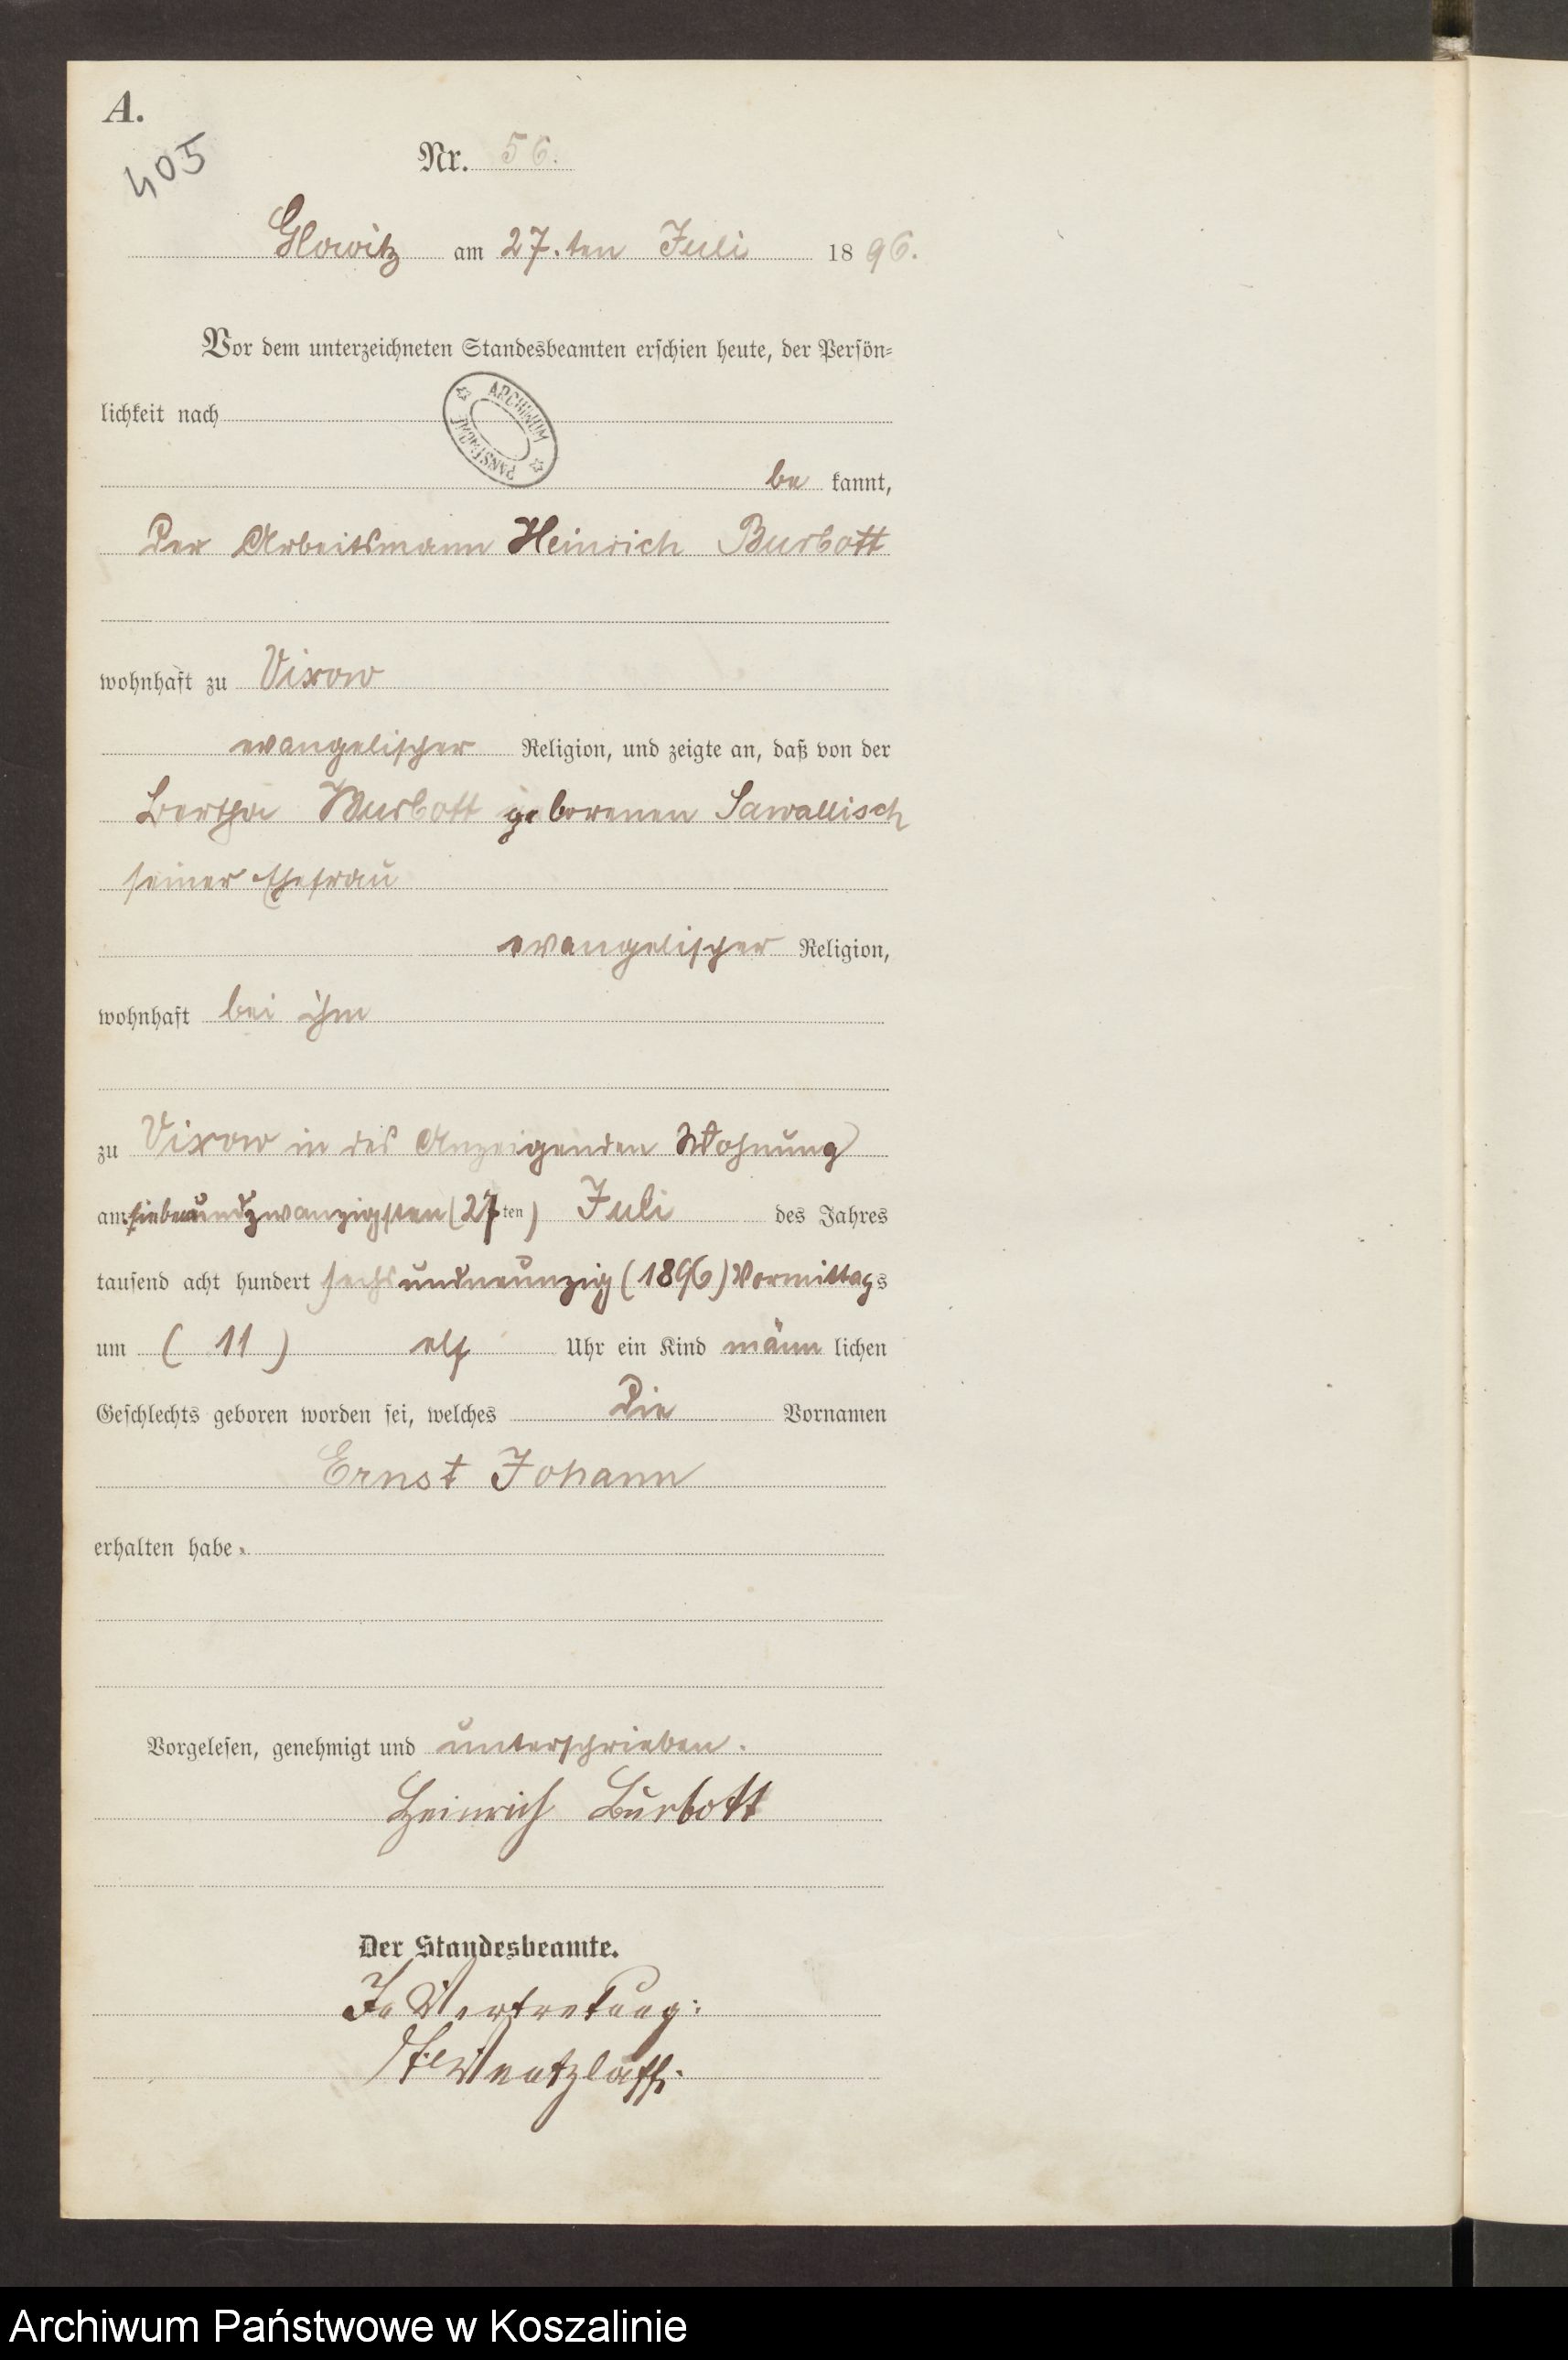 A.
405
Nr. 56.
Glowitz am 27.ten Juli 1896.
Vor dem unterzeichneten Standesbeamten erschien heute, der Persön-
lichkeit nach
ARCHIWUM PAŃSTWOWE
be kannt,
der Arbeitsmann Heinrich Burbott
wohnhaft zu Vixow
evangelischer Religion, und zeigte an, daß von der
Bertha Burbott geborenen Sawallisch
seiner Ehefrau
evangelischer Religion,
wohnhaft bei ihm
zu Vixow in des Anzeigenden Wohnung
am siebenundzwanzigsten (27ten) Juli des Jahres
tausend acht hundert sechsundneunzig (1896) Vormittags
um ( 11 ) elf Uhr ein Kind männ lichen
Geschlechts geboren worden sei, welches die Vornamen
Ernst Johann
erhalten habe.
Vorgelesen, genehmigt und unterschrieben.
Heinrich Burbott
Der Standesbeamte.
In Vertretung:
Wentzlaff.
Archiwum Państwowe w Koszalinie